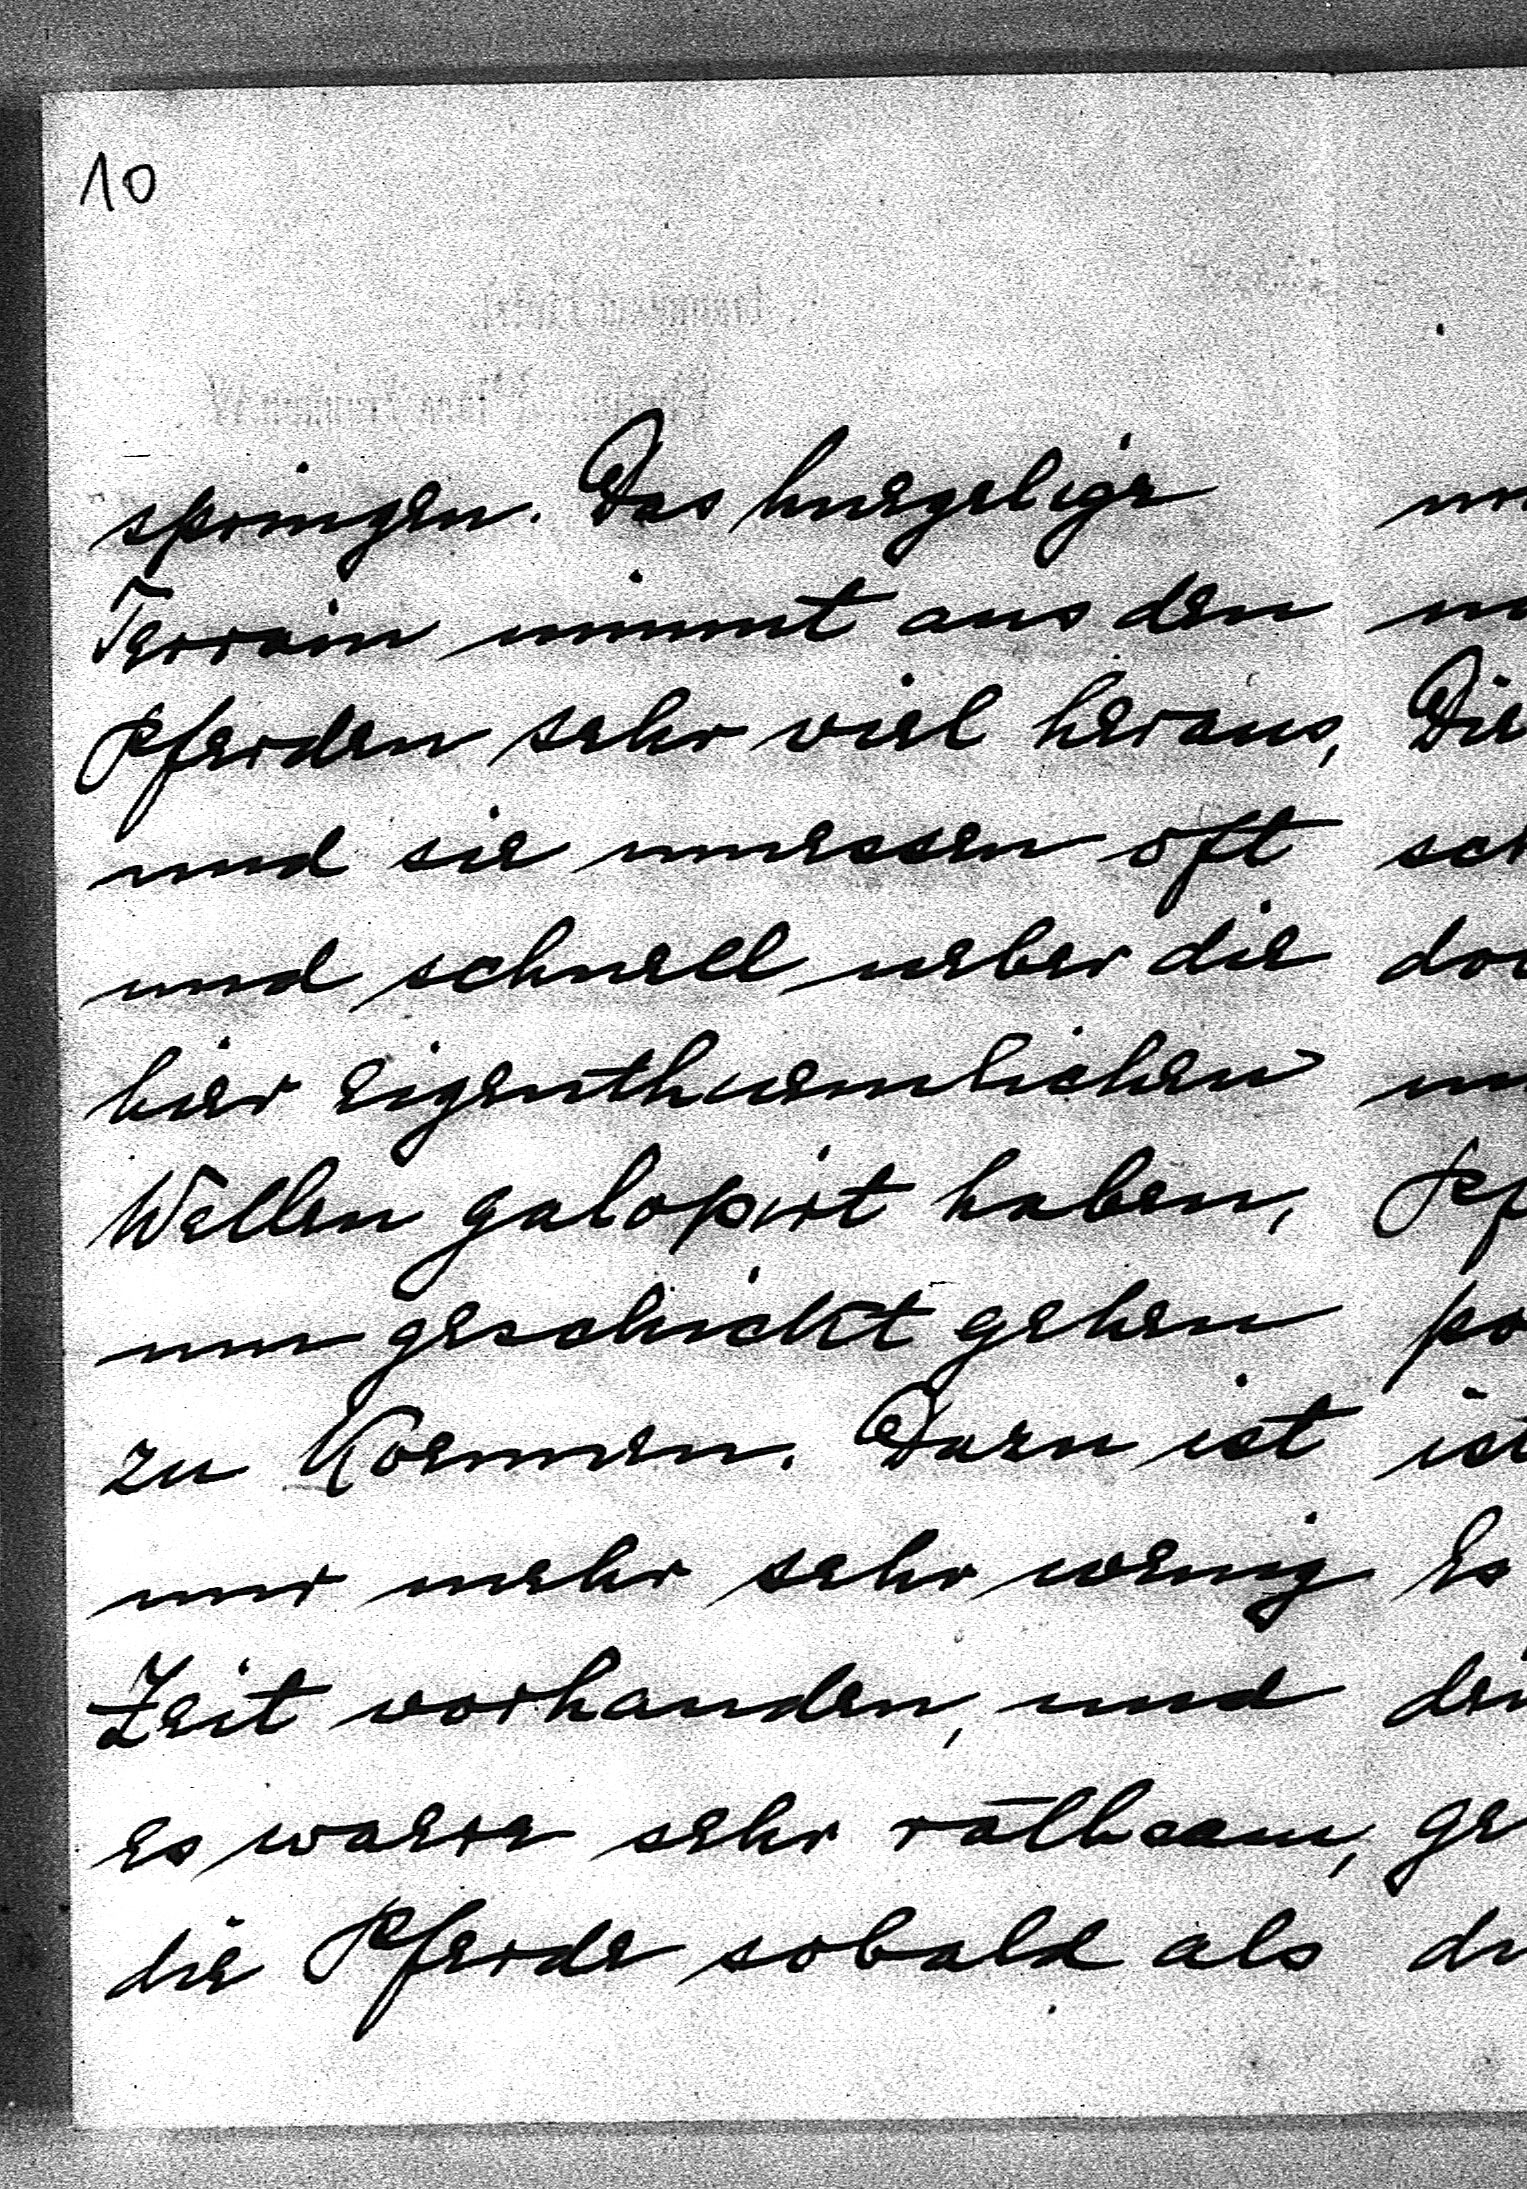 10
springen. Das huegelige
Terrain nimmt aus den
Pferden sehr viel heraus,
und sie muessen oft
und schnell ueber die
hier eigenthuemlichen
Wellen galopirt haben,
um geschickt gehen
zu koennen. Daen ist
nur mehr sehr wenig
Zeit vorhanden, und
es waere sehr rathsam,
die Pferde sobald als
Die
sch
ist
Es
ge